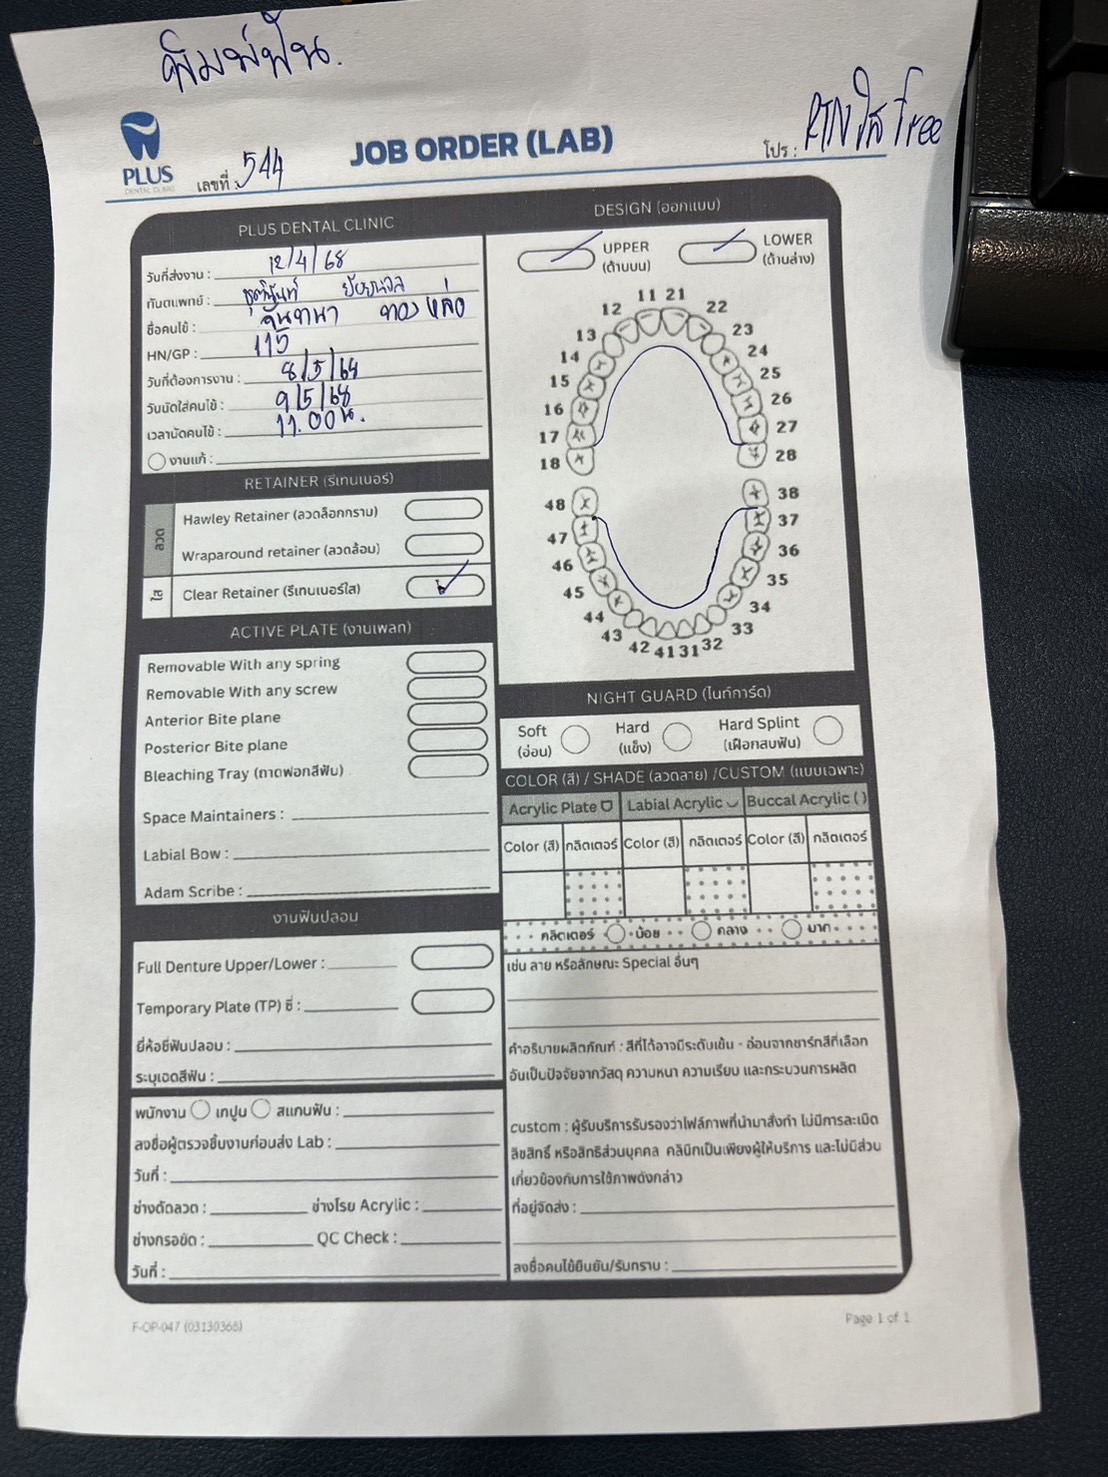 พิมพ์ฟัน.
PLUS
DENTAL CLINIC
เลขที่ : 544
JOB ORDER (LAB)
โปร : RTN ใส free
PLUS DENTAL CLINIC
วันที่ส่งงาน : 12/4/68
ทันตแพทย์ :
ชื่อคนไข้ : จันทนา ทองหล่อ
HN/GP : 115
วันที่ต้องการงาน : 8/5/68
วันนัดใส่คนไข้ : 9/5/68
เวลานัดคนไข้ : 11.00 น.
งานแก้ :
RETAINER (รีเทนเนอร์)
ลวด
Hawley Retainer (ลวดล็อกกราม)
Wraparound retainer (ลวดล้อม)
ใส
Clear Retainer (รีเทนเนอร์ใส)
ACTIVE PLATE (งานเพลท)
Removable With any spring
Removable With any screw
Anterior Bite plane
Posterior Bite plane
Bleaching Tray (ถาดฟอกสีฟัน)
Space Maintainers :
Labial Bow :
Adam Scribe :
งานฟันปลอม
Full Denture Upper/Lower :
Temporary Plate (TP) ซี่ :
ยี่ห้อซี่ฟันปลอม :
ระบุเฉดสีฟัน :
พนักงาน เทปูน สแกนฟัน :
ลงชื่อผู้ตรวจชิ้นงานก่อนส่ง Lab :
วันที่ :
ช่างดัดลวด : ช่างโรย Acrylic :
ช่างกรอขัด : QC Check :
วันที่ :
DESIGN (ออกแบบ)
UPPER
(ด้านบน)
LOWER
(ด้านล่าง)
11 21
12 22
13 23
14 24
15 25
16 26
17 27
18 28
48 38
47 37
46 36
45 35
44 34
43 33
42 41 31 32
NIGHT GUARD (ไนท์การ์ด)
Soft
(อ่อน)
Hard
(แข็ง)
Hard Splint
(เฝือกสบฟัน)
COLOR (สี) / SHADE (ลวดลาย) /CUSTOM (แบบเฉพาะ)
Acrylic Plate Labial Acrylic Buccal Acrylic ( )
Color (สี) กลิตเตอร์ Color (สี) กลิตเตอร์ Color (สี) กลิตเตอร์
กลิตเตอร์ น้อย กลาง มาก
เช่น ลาย หรือลักษณะ Special อื่นๆ
คำอธิบายผลิตภัณฑ์ : สีที่ได้อาจมีระดับเข้ม - อ่อนจากชาร์ทสีที่เลือก
อันเป็นปัจจัยจากวัสดุ ความหนา ความเรียบ และกระบวนการผลิต
custom : ผู้รับบริการรับรองว่าไฟล์ภาพที่นำมาสั่งทำ ไม่มีการละเมิด
ลิขสิทธิ์ หรือสิทธิส่วนบุคคล คลินิกเป็นเพียงผู้ให้บริการ และไม่มีส่วน
เกี่ยวข้องกับการใช้ภาพดังกล่าว
ที่อยู่จัดส่ง :
ลงชื่อคนไข้ยืนยัน/รับทราบ :
F-OP-047 (03130368)
Page 1 of 1